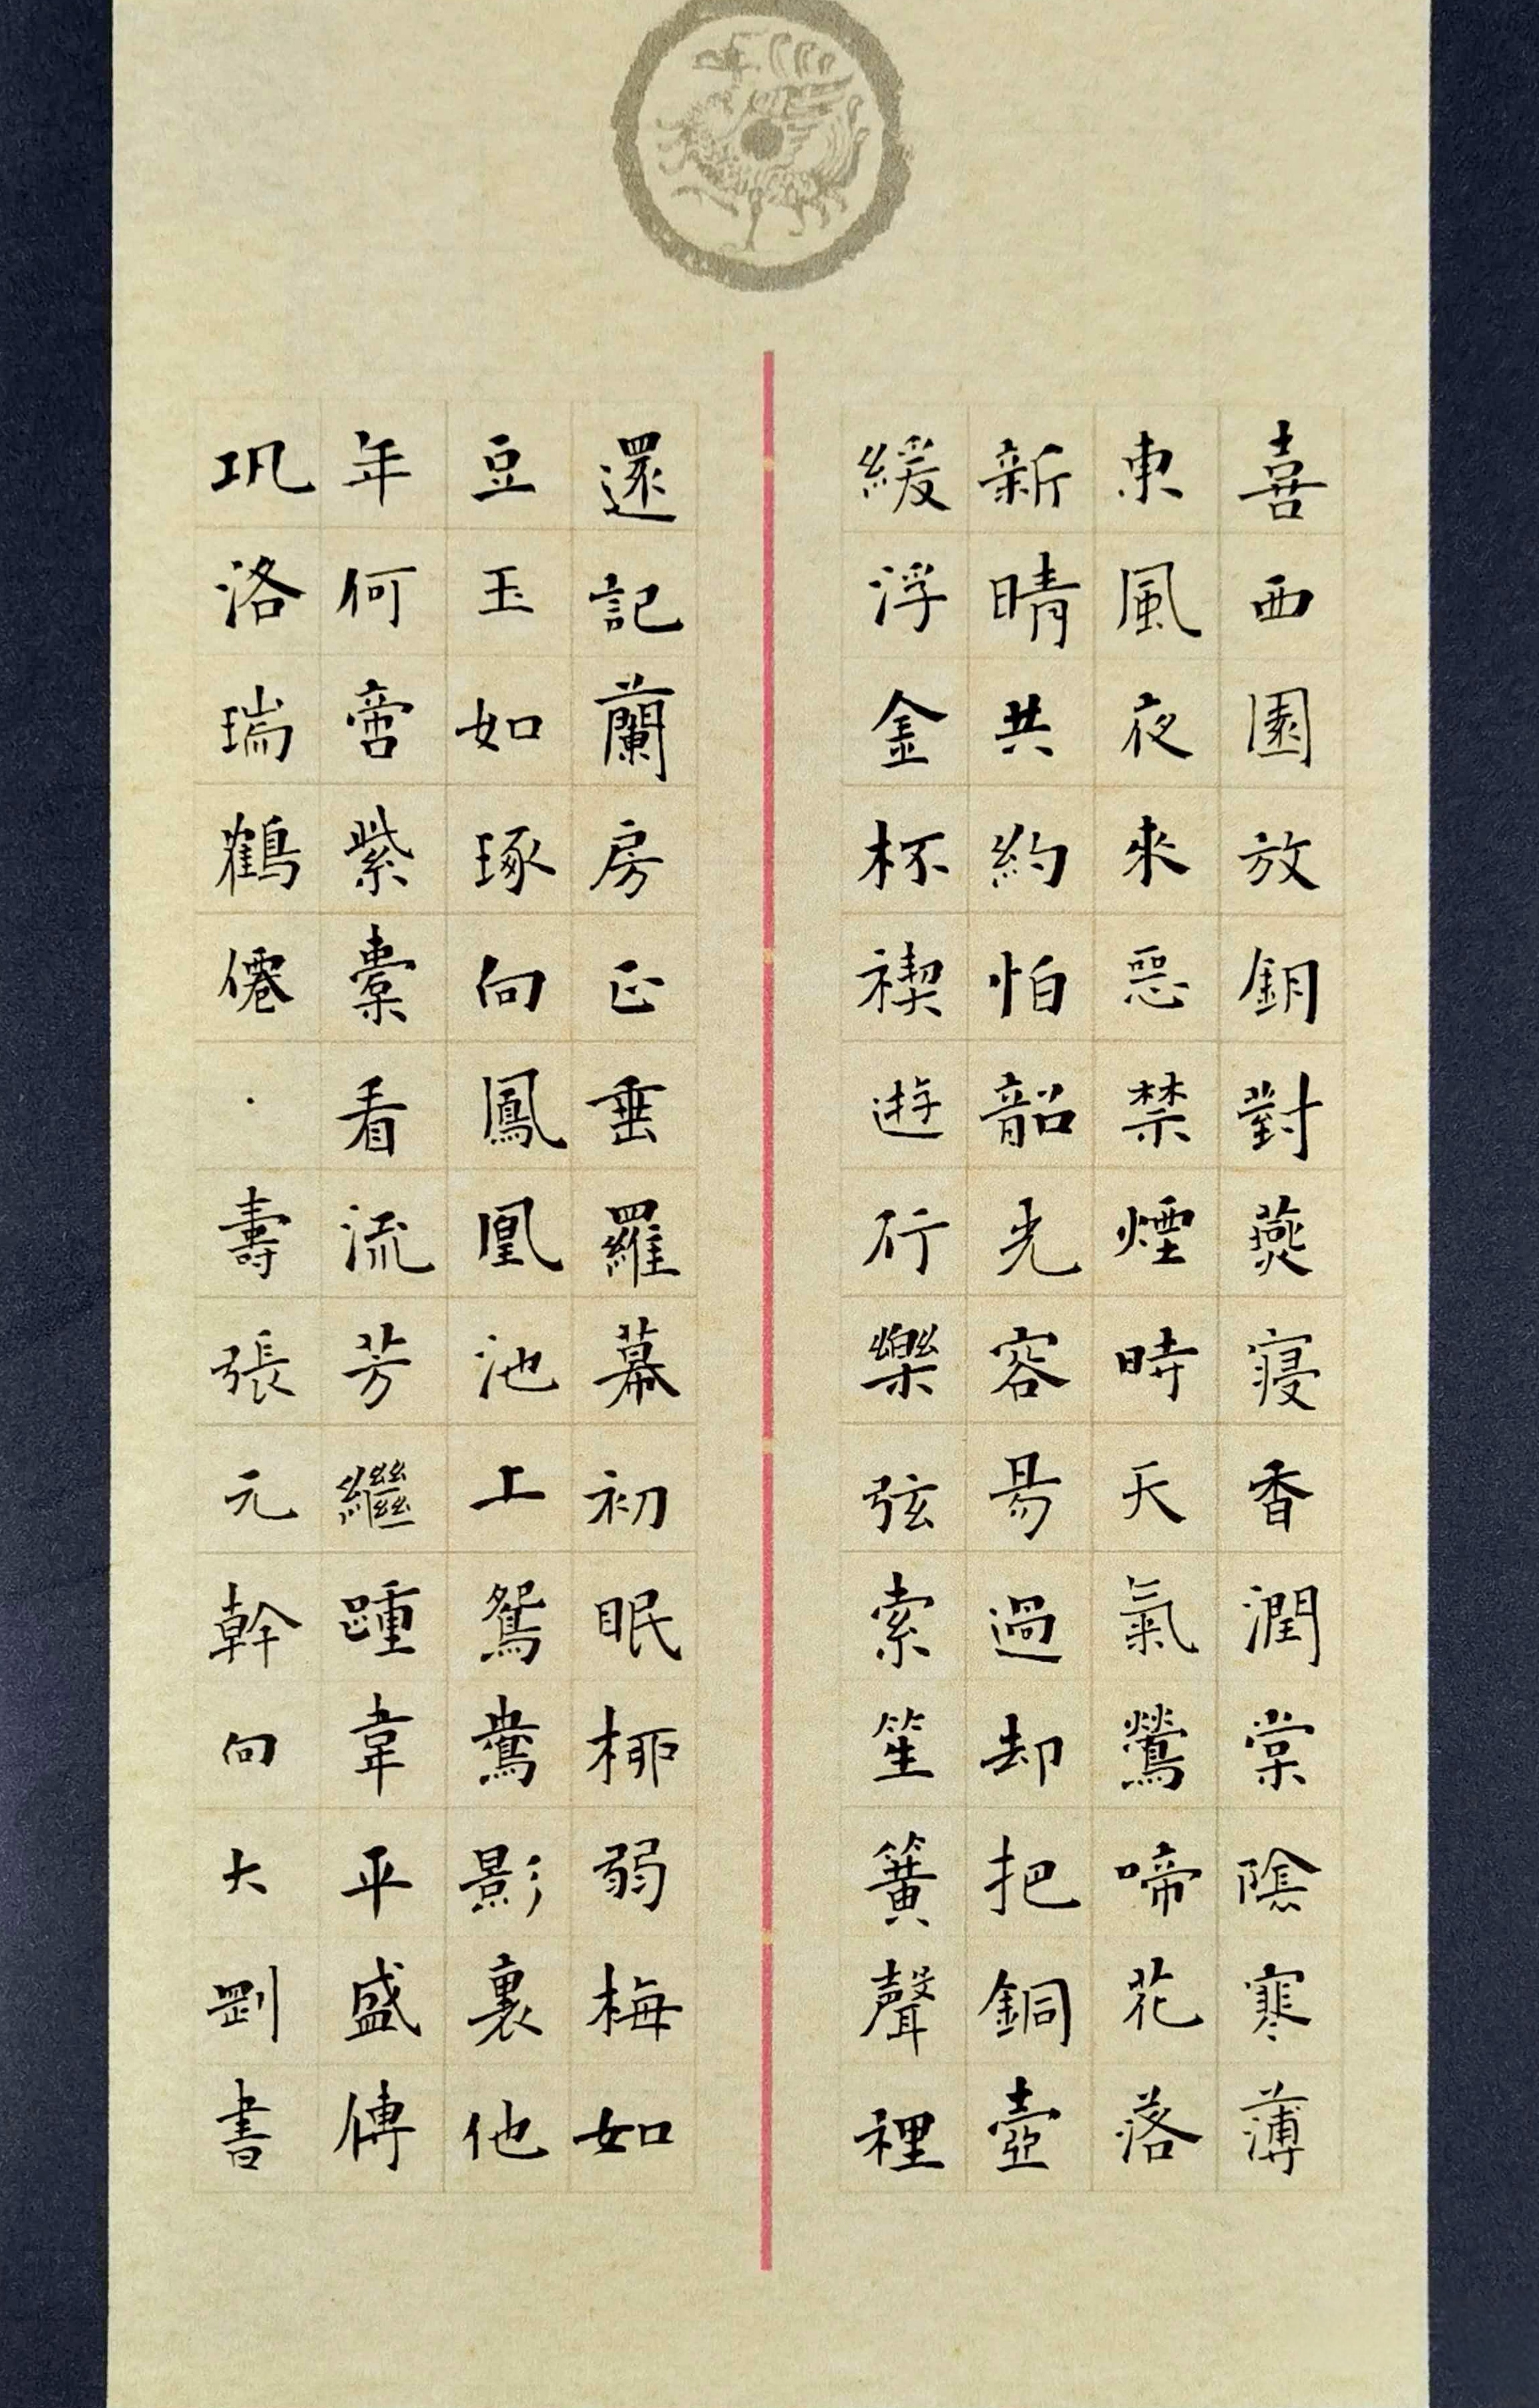 喜西園放鈅對燕寢香潤棠陰寒薄
東風夜來惡禁煙時天氣鶯啼花落
新晴共約怕韶光容易過却把銅壺
緩浮金杯禊遊行樂弦索笙簧聲裡
還記蘭房正垂羅幕初眠柳弱梅如
豆玉如琢向鳳凰池上鴛鴦影裏他
年何啻紫橐看流芳繼踵韋平盛傳
巩洛瑞鶴僊·壽張元幹向大剛書